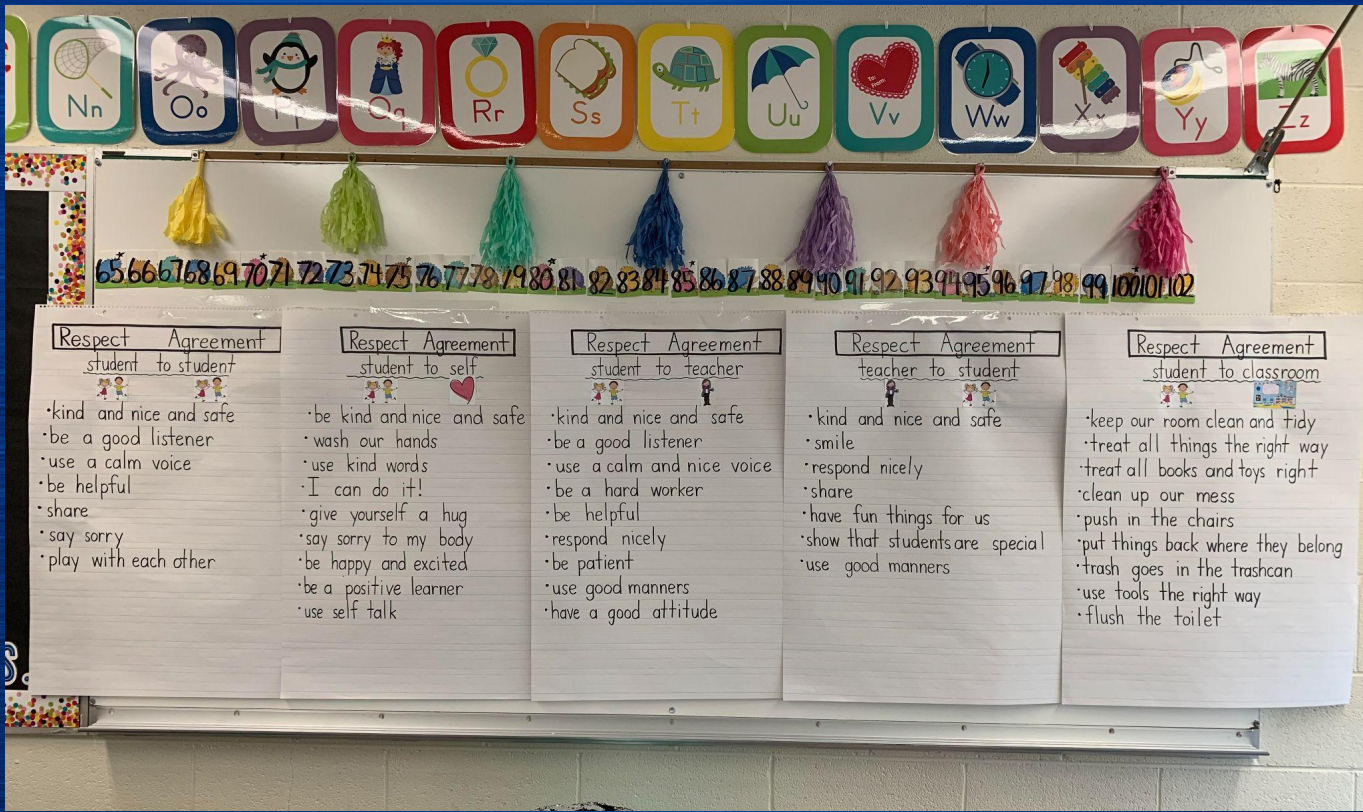 Nn
Oo
Pp
Qq
Rr
Ss
Tt
Uu
Vv
To:
From:
Ww
Xx
Yy
Zz
65 66 67 68 69 70 71 72 73 74 75 76 77 78 79 80 81 82 83 84 85 86 87 88 89 90 91 92 93 94 95 96 97 98 99 100 101 102
Respect Agreement
student to student
·kind and nice and safe
·be a good listener
·use a calm voice
·be helpful
·share
·say sorry
·play with each other
Respect Agreement
student to self
·be kind and nice and safe
·wash our hands
·use kind words
·I can do it!
·give yourself a hug
·say sorry to my body
·be happy and excited
·be a positive learner
·use self talk
Respect Agreement
student to teacher
·kind and nice and safe
·be a good listener
·use a calm and nice voice
·be a hard worker
·be helpful
·respond nicely
·be patient
·use good manners
·have a good attitude
Respect Agreement
teacher to student
·kind and nice and safe
·smile
·respond nicely
·share
·have fun things for us
·show that students are special
·use good manners
Respect Agreement
student to classroom
·keep our room clean and tidy
·treat all things the right way
·treat all books and toys right
·clean up our mess
·push in the chairs
·put things back where they belong
·trash goes in the trashcan
·use tools the right way
·flush the toilet